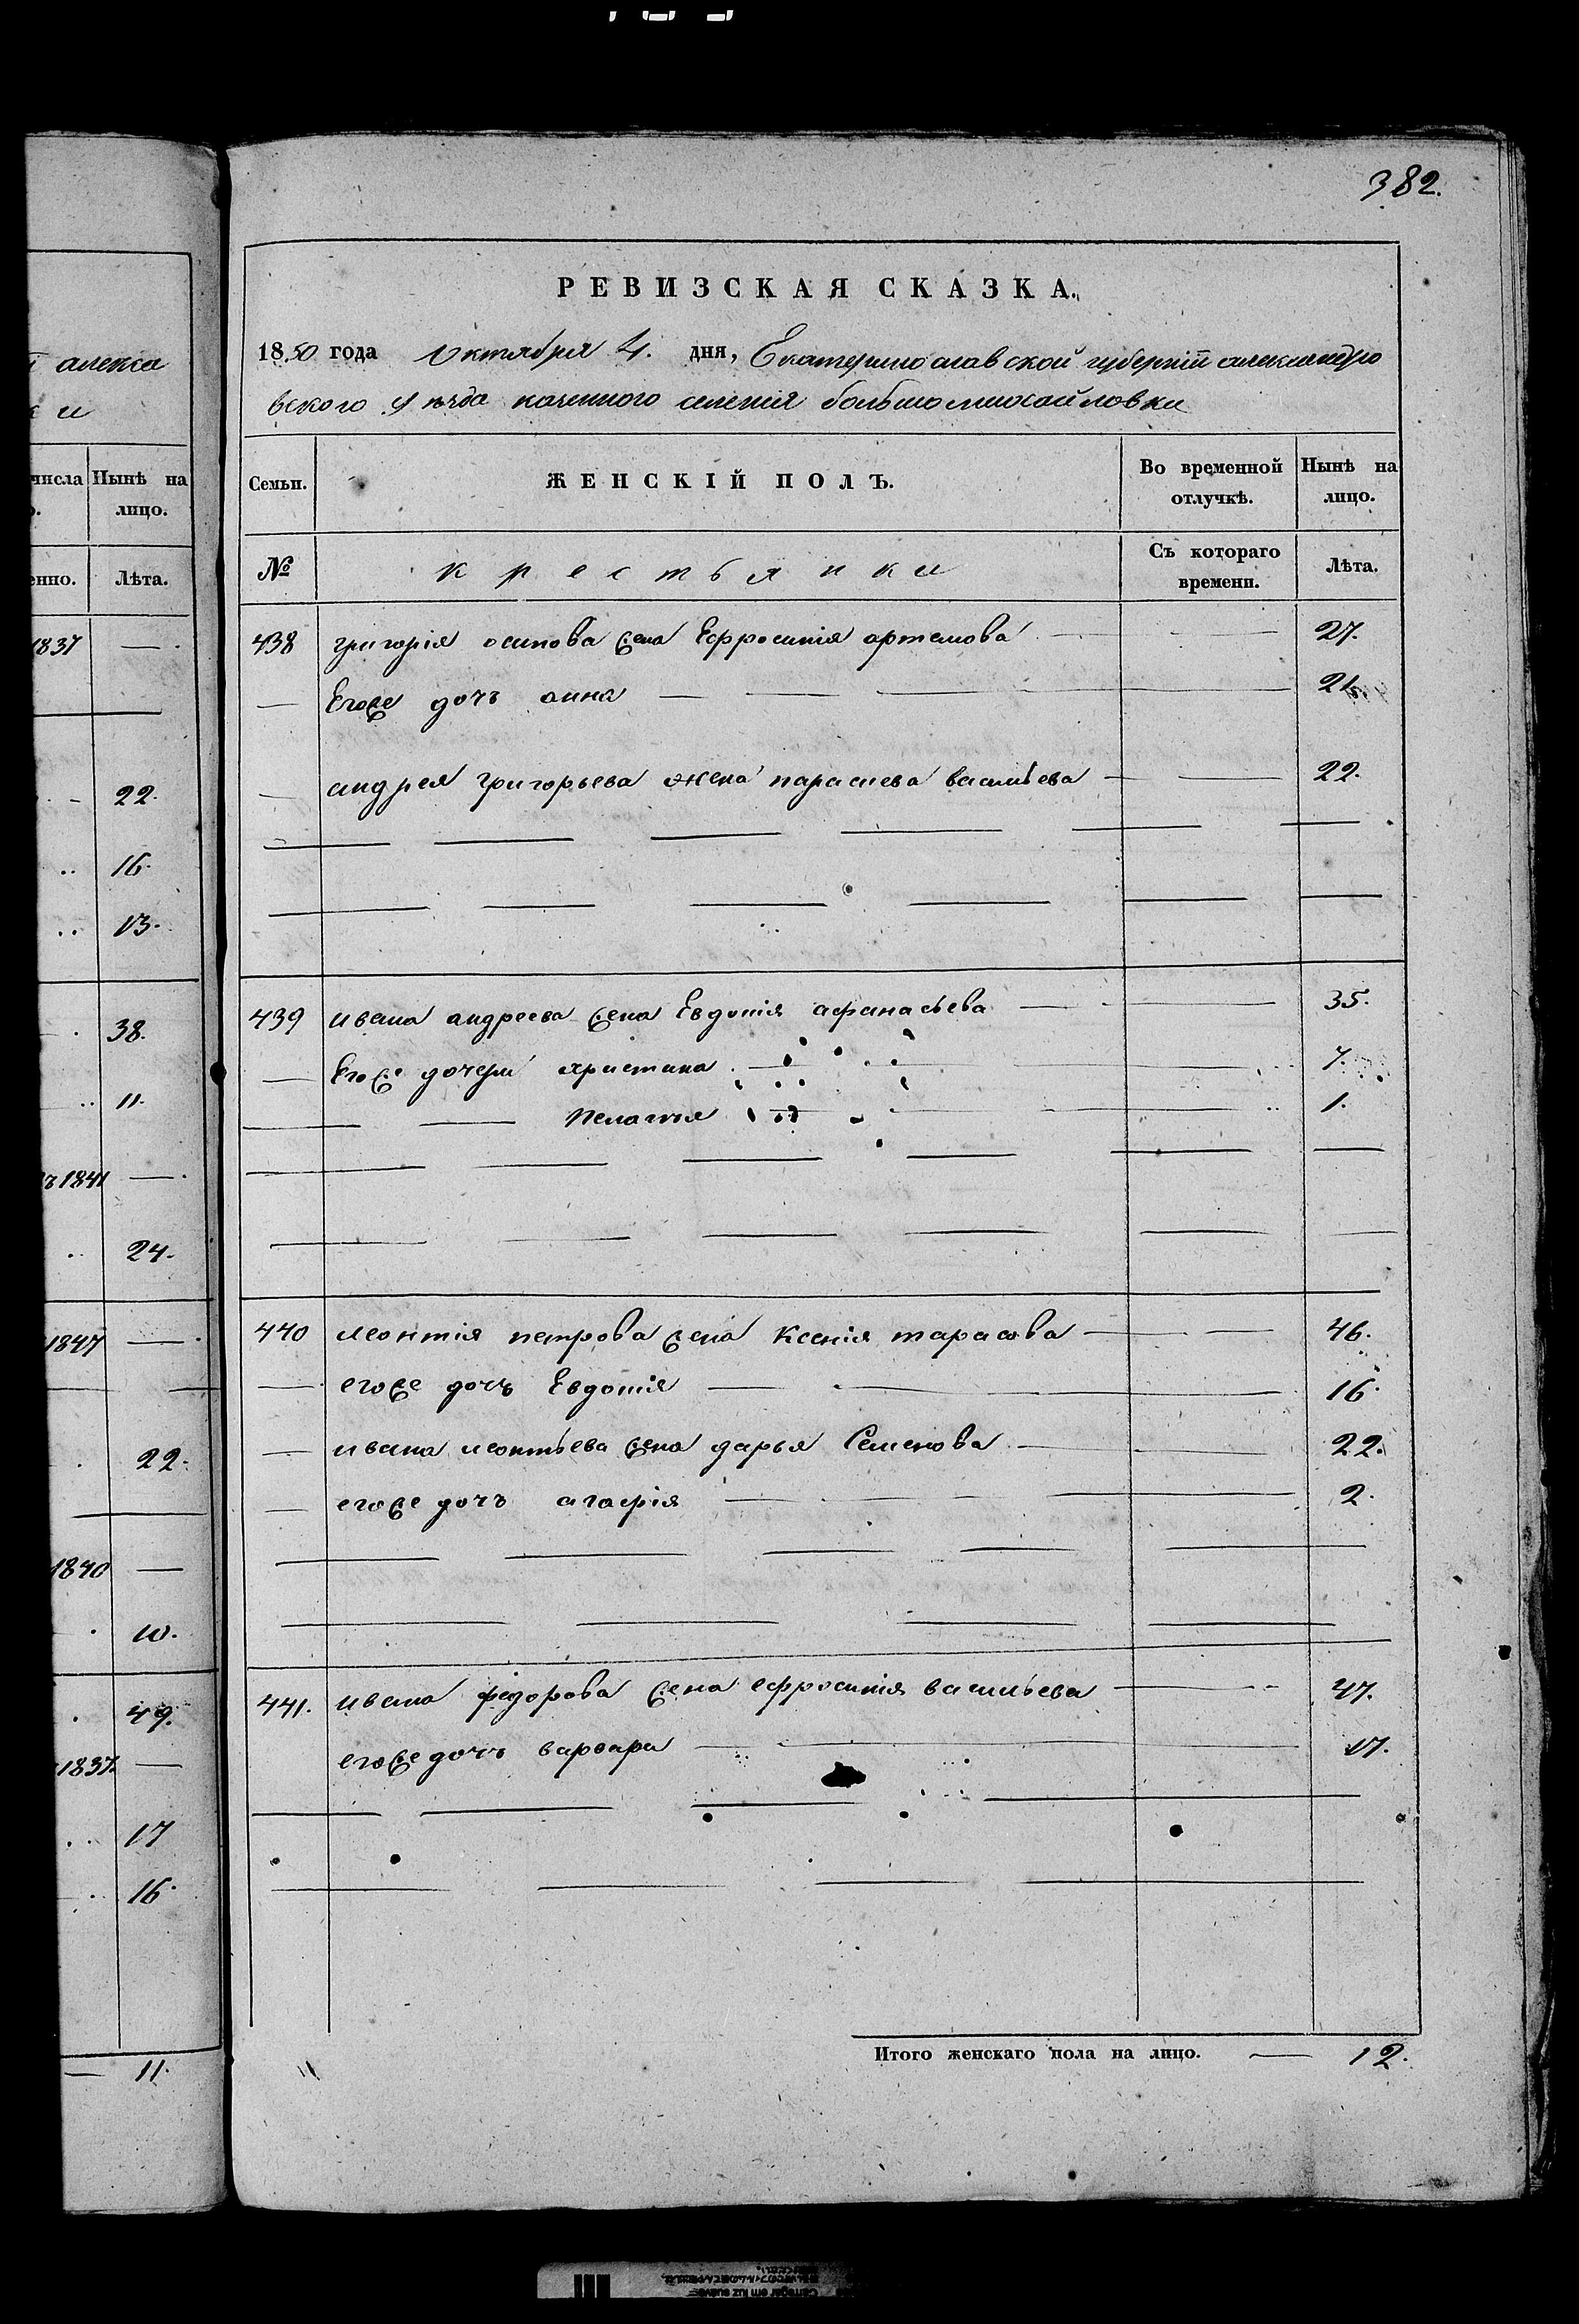 382.
РЕВИЗСКАЯ СКАЗКА.
1850 года Октября 4. дня, Екатеринославской губерніи александро
вского уѣзда казенного селенія большомихайловки
Семьи.
ЖЕНСКІЙ ПОЛЪ.
Во временной отлучкѣ.
Нынѣ на лицо.
№
крестьянки
Съ котораго времени.
Лѣта.
438 григорія осипова жена Ефросинія артемова 27.
Егоже дочъ анна 21.
андрея григорьева жена параскева васильева 22.
439 ивана андреева жена Евдокія афанасьева 35.
Егоже дочери христина 7.
Пелагия 1.
440 леонтія петрова жена Ксенія тарасова 46.
егоже дочъ Евдокія 16.
ивана леонтьева жена дарья Семенова 22.
егоже дочъ агафія 2.
441. ивана федорова жена ефросинія васильева 47.
егоже дочъ варвара 17.
Итого женскаго пола на лицо. 12.
алекса
ки
числа
Нынѣ на лицо.
енно.
Лѣта.
1837
22.
16.
13.
38.
11.
1841
24.
1847
22.
1840
10.
49.
1837.
17
16.
11.